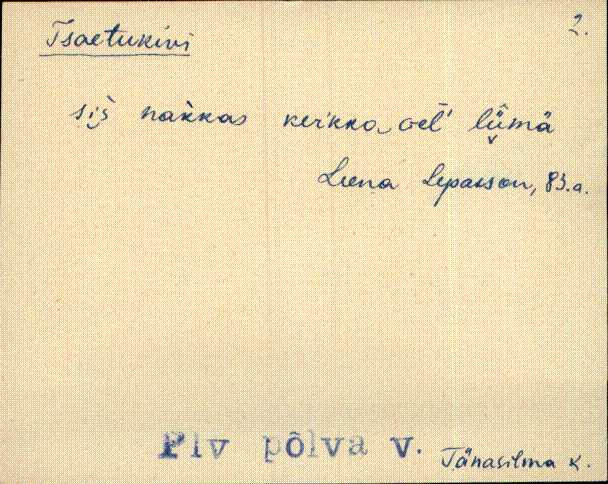 Tsaetukivi
2.
siš nakkas kerkko oet' lümä
Leena Lepasson, 83.a.
Plv põlva v. Tänasilma k.